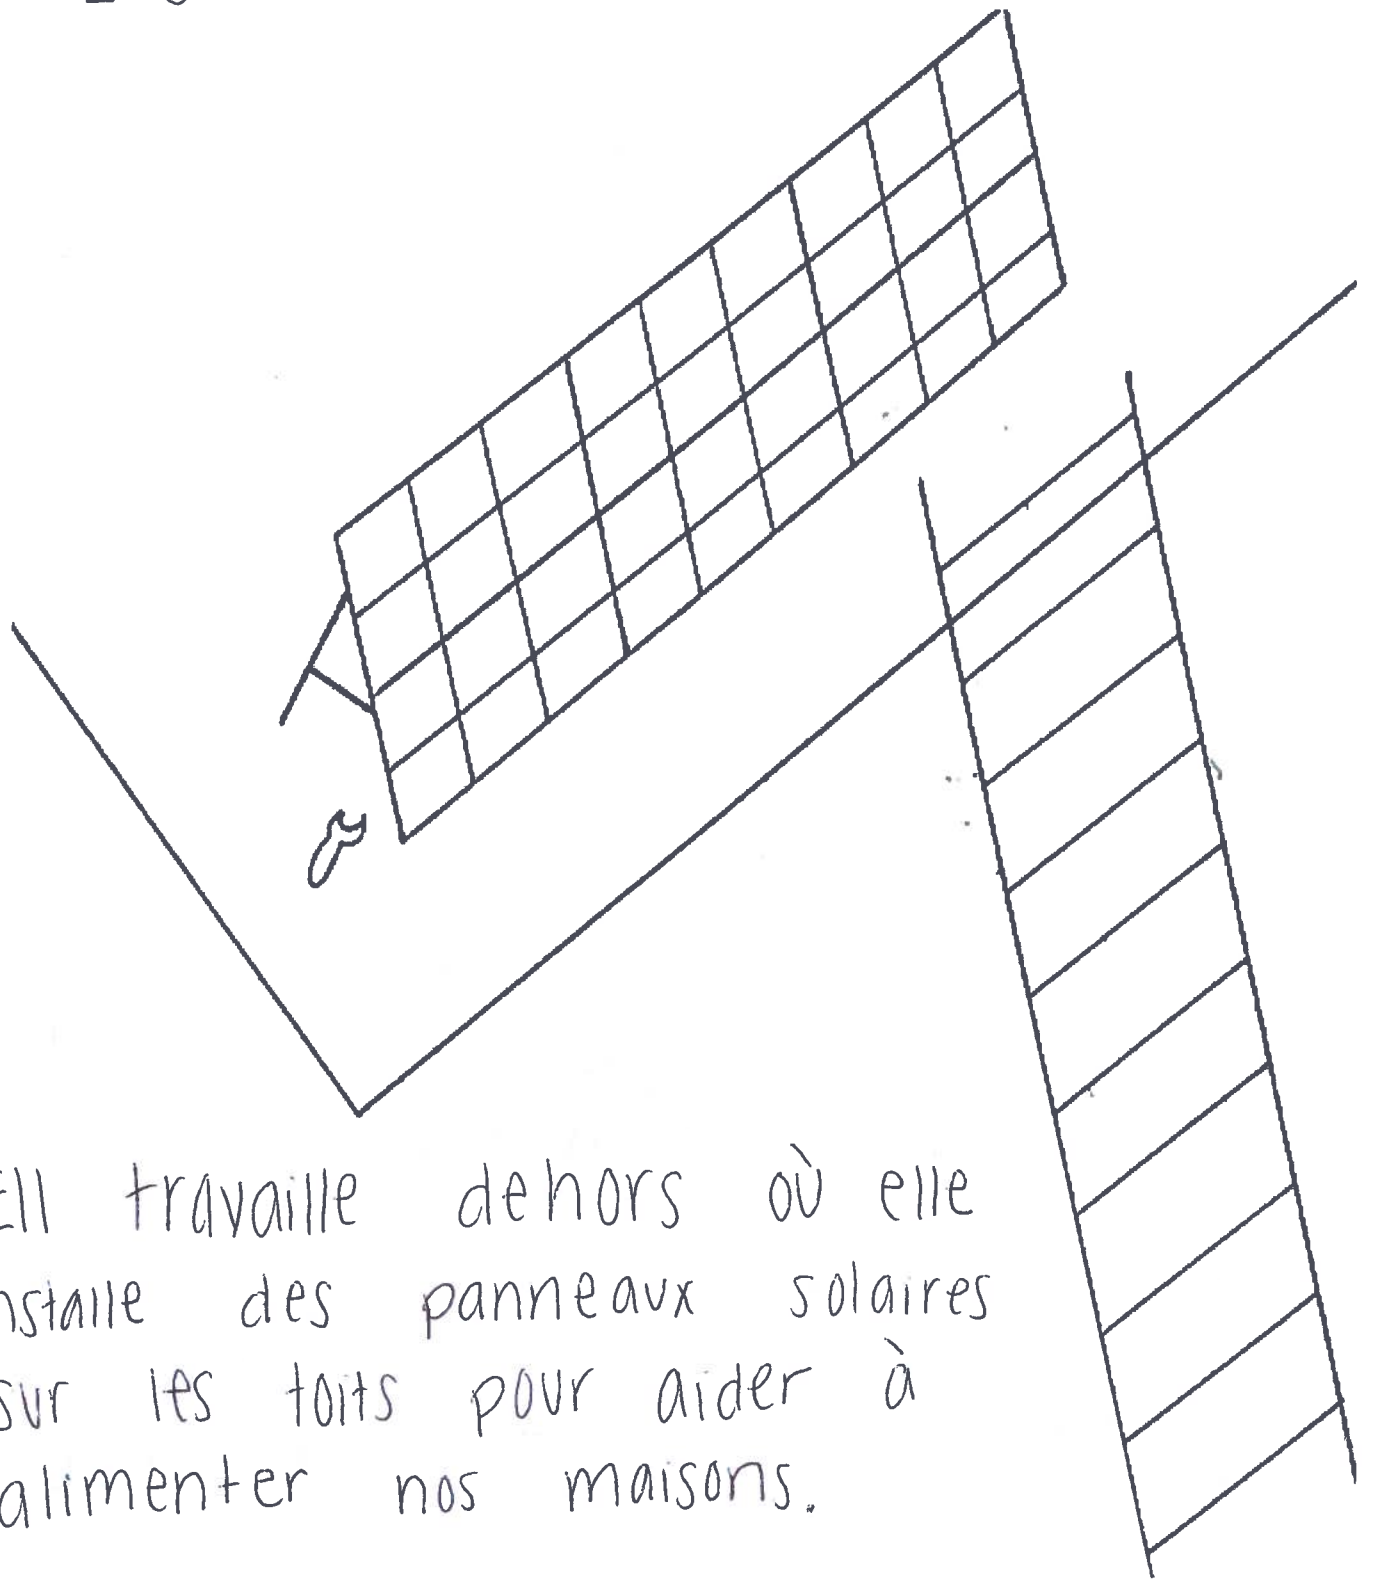 Ell travaille dehors où elle
nstalle des panneaux solaires
sur les toits pour aider à
alimenter nos maisons.